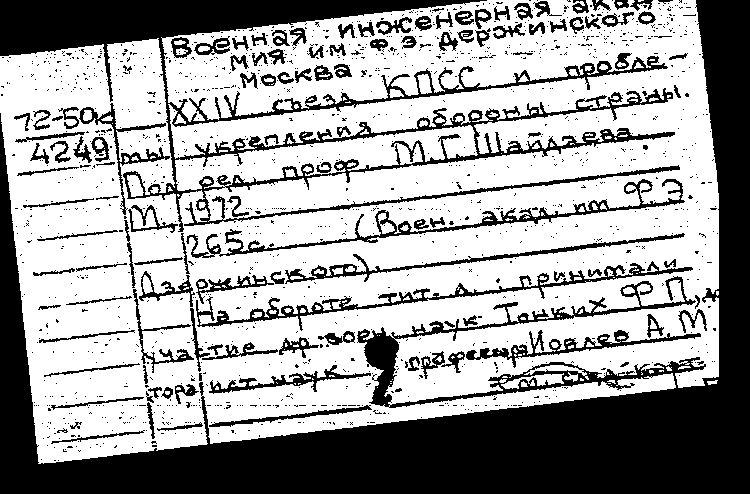 Военная инженерная акаде-
мия им. Ф.Э. Дзержинского
Москва.
XXIV съезд КПСС и пробле-
72-50к
4249 мы укрепления обороны страны.
Под ред. проф. М.Г. Шайдаева.
М., 1972.
265с. (Воен. акад. им Ф.Э.
Дзержинского).
На обороте тит. л.: принимали
участие др. воен. наук Тонких Ф П., до
тора ист. наук профессора Иовлев А.М.
См. след. карт.